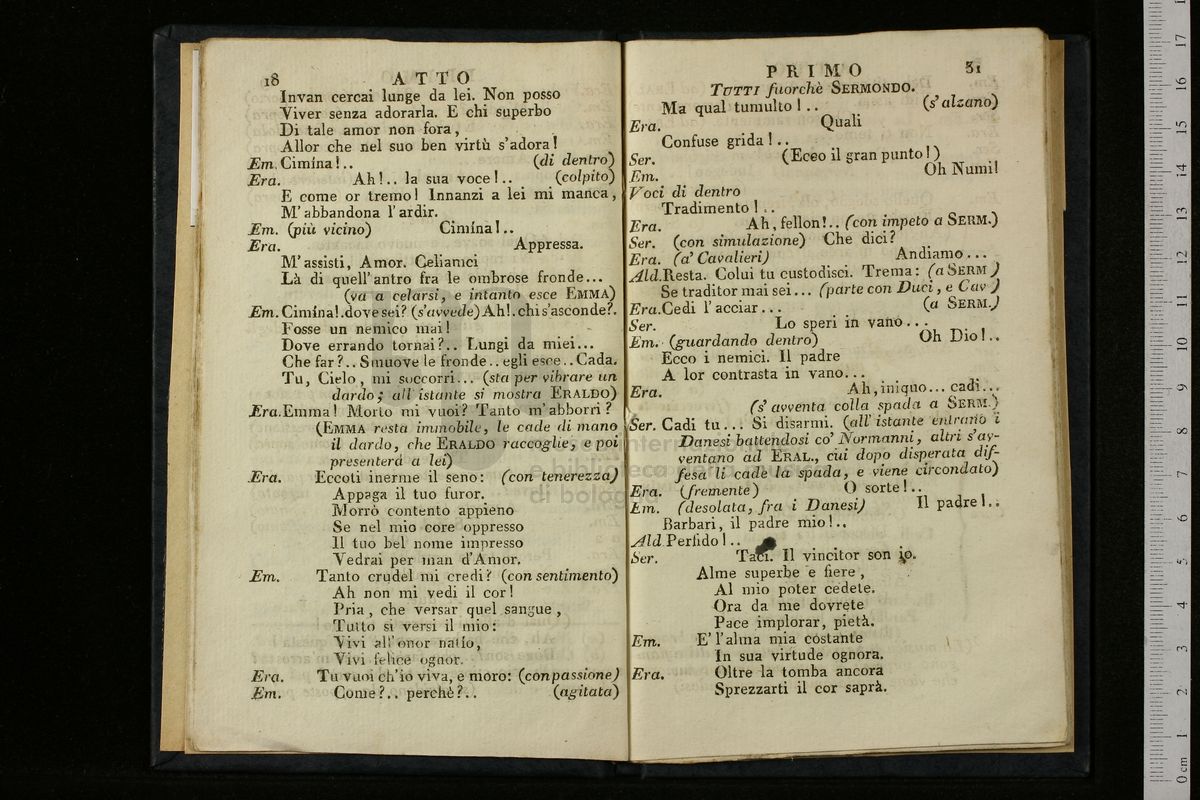 18 ATTO
Invan cercai lunge da lei. Non posso
Viver senza adorarla. E chi superbo
Di tale amor non fora,
Allor che nel suo ben virtù s'adora!
Em. Cimina!.. (di dentro)
Era. Ah!.. la sua voce!.. (colpito)
E come or tremo! Innanzi a lei mi manca,
M'abbandona l'ardir.
Em. (più vicino) Cimina!..
Era. Appressa.
M'assisti, Amor. Celiamci
Là di quell'antro fra le ombrose fronde...
(va a celarsi, e intanto esce EMMA)
Em. Cimina!.dove sei? (s'avvede) Ah!.chi s'asconde?.
Fosse un nemico mai!
Dove errando tornai?.. Lungi da miei...
Che far?.. Smuove le fronde.. egli esce.. Cada.
Tu, Cielo, mi soccorri... (sta per vibrare un
dardo; all'istante si mostra ERALDO)
Era. Emma! Morto mi vuoi? Tanto m'abborri?
(EMMA resta immobile, le cade di mano
il dardo, che ERALDO raccoglie, e poi
presenterà a lei)
Era. Eccoti inerme il seno: (con tenerezza)
Appaga il tuo furor.
Morrò contento appieno
Se nel mio core oppresso
Il tuo bel nome impresso
Vedrai per man d'Amor.
Em. Tanto crudel mi credi? (con sentimento)
Ah non mi vedi il cor!
Pria, che versar quel sangue,
Tutto si versi il mio:
Vivi all'onor natìo,
Vivi felice ognor.
Era. Tu vuoi ch'io viva, e moro: (con passione)
Em. Come?.. perchè?.. (agitata)
PRIMO 31
TUTTI fuorchè SERMONDO.
Ma qual tumulto!.. (s'alzano)
Era. Quali
Confuse grida!..
Ser. (Ecco il gran punto!)
Em. Oh Numi!
Voci di dentro
Tradimento!..
Era. Ah, fellon!.. (con impeto a SERM.)
Ser. (con simulazione) Che dici?
Era. (a' Cavalieri) Andiamo...
Ald. Resta. Colui tu custodisci. Trema: (a SERM)
Se traditor mai sei... (parte con Duci, e Cav)
Era. Cedi l'acciar... (a SERM.)
Ser. Lo speri in vano...
Em. (guardando dentro) Oh Dio!..
Ecco i nemici. Il padre
A lor contrasta in vano...
Era. Ah, iniquo... cadi...
(s'avventa colla spada a SERM.)
Ser. Cadi tu... Si disarmi. (all'istante entrano i
Danesi battendosi co' Normanni, altri s'av-
ventano ad ERAL., cui dopo disperata dif-
fesa li cade la spada, e viene circondato)
Era. (fremente) O sorte!..
Em. (desolata, fra i Danesi) Il padre!..
Barbari, il padre mio!..
Ald Perfido!..
Ser. Taci. Il vincitor son io.
Alme superbe e fiere,
Al mio poter cedete.
Ora da me dovrete
Pace implorar, pietà.
Em. E' l'alma mia costante
In sua virtude ognora.
Era. Oltre la tomba ancora
Sprezzarti il cor saprà.